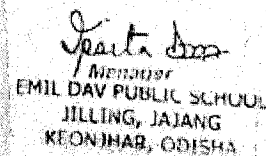 Manager
EMIL DAV PUBLIC SCHOOL
JILLING, JAJANG
KEONJHAR, ODISHA